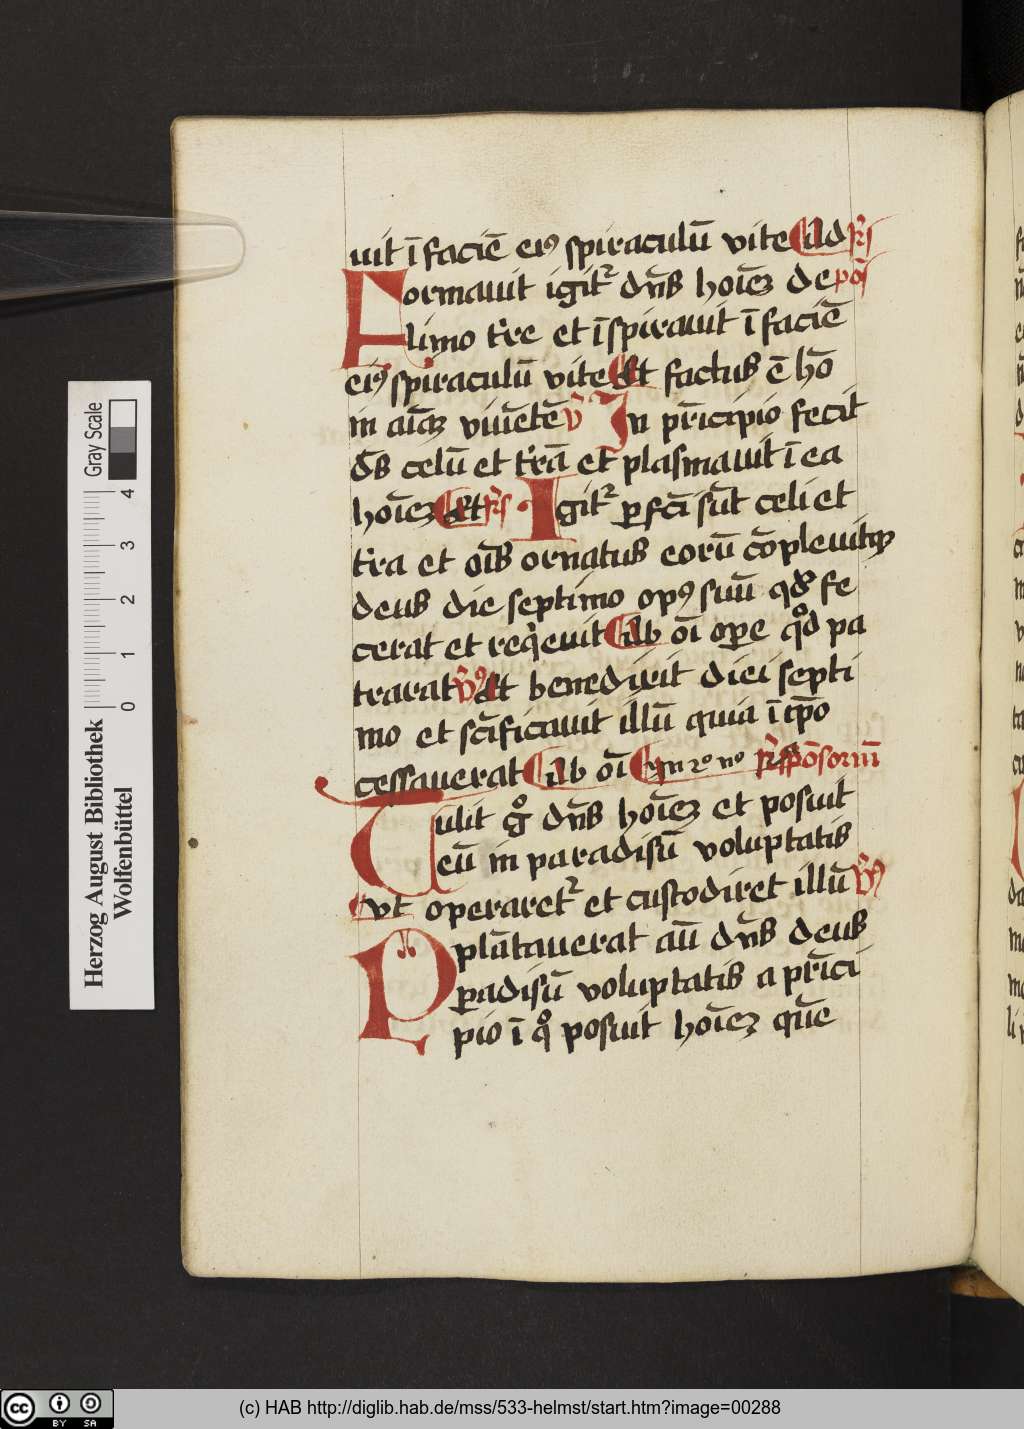 uit ī faciē eiꝰ spiraculū vite Ad Rs
Formauit igitᷣ dn̄s hoīeꝫ de pōs
limo tr̄re et īspirauit ī faciē
eiꝰ spiraculū vite Et factus ē hō
in aīaꝫ viuētē v̄ In pr̄icipio fecit
ds̄ celū et tr̄rā et plasmauit ī ea
hoīeꝫ Et Rs Igitᷣ ꝑfcī sūt celi et
tr̄ra et oīs ornatus eorū cōpleuitqꝫ
deus die septimo opꝰ suū qd̄ fe
cerat et req̄euit Ab oī oꝑe qͦd pa
trarat v̄s Et benedixit diei septi
mo et scīficauit illū quia ī ip̄o
cessauerat Ab oī Rn̄sōrium
Tulit gͦ dn̄s hoīeꝫ et posuit
eū in paradisū voluptatis
Vt operaretᷣ et custodiret illū v̄s
Plātauerat aū dn̄s deus
ꝑadisū voluptatis a pr̄ici
pio ī qͦ posuit hoīeꝫ quē
Gray Scale
4
3
2
1
0
Herzog August Bibliothek
Wolfenbüttel
cc BY SA
(c) HAB http://diglib.hab.de/mss/533-helmst/start.htm?image=00288